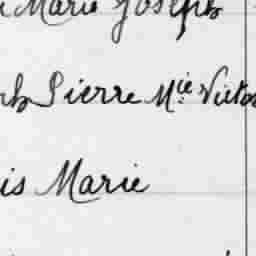 Marie Joseph
ph Pierre Mie Victo
is Marie